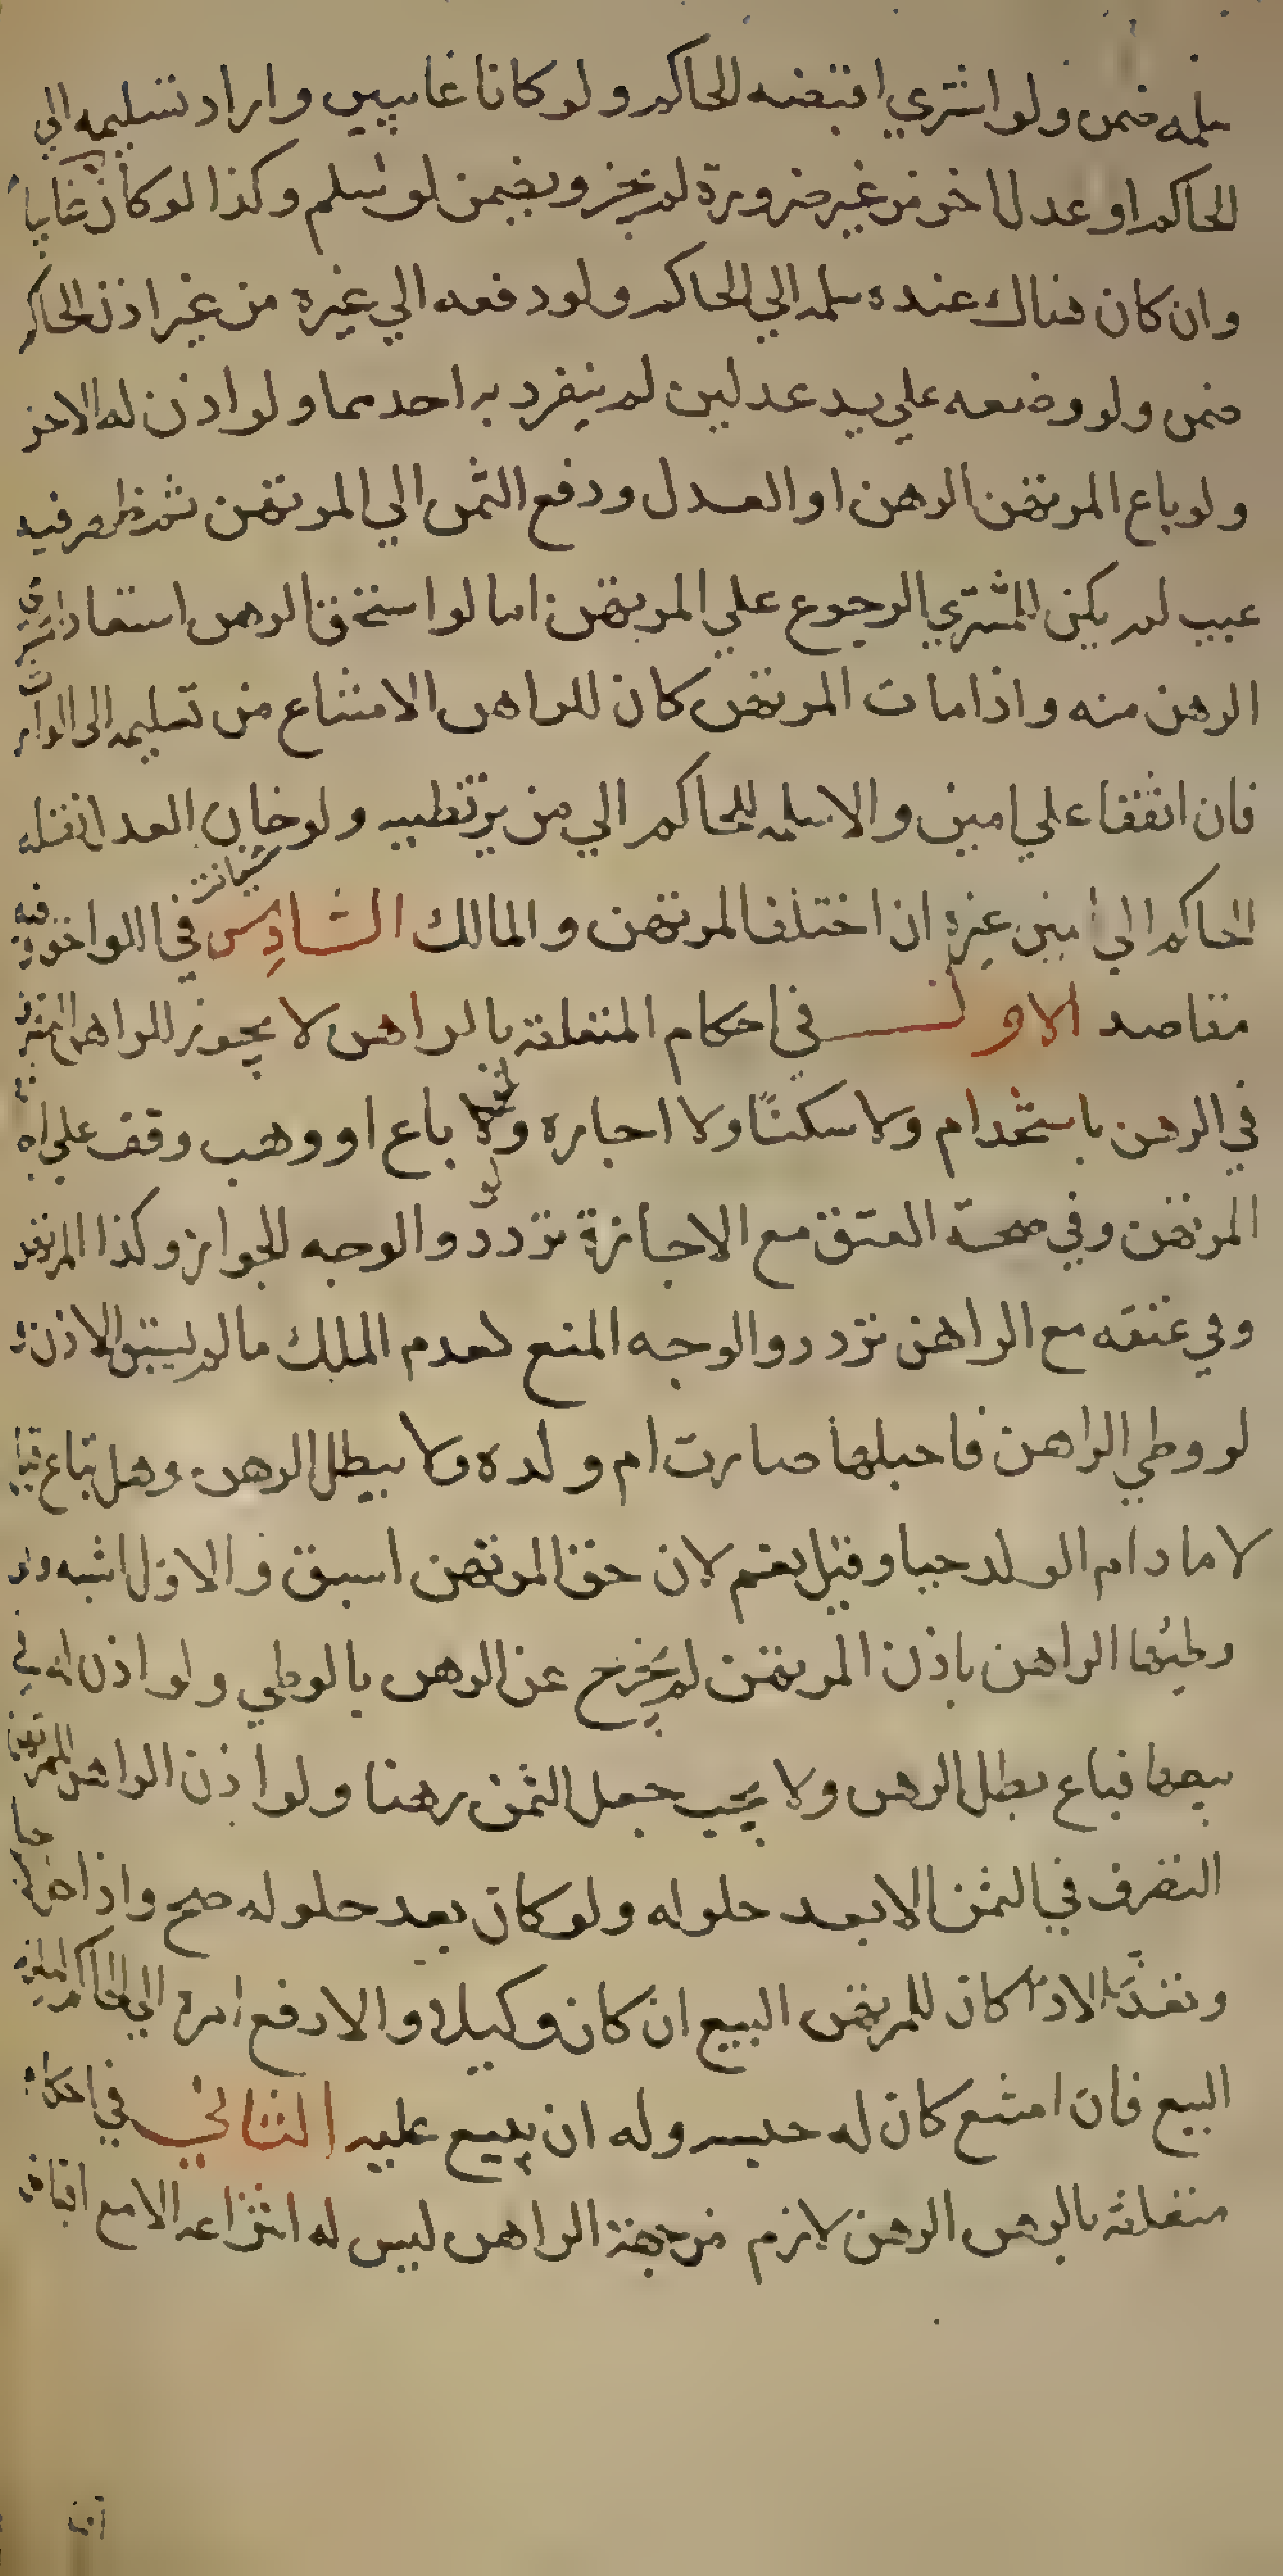 سلمه ضمن ولو اشتري اقبضه الحاكم ولو كانا غايبين واراد تسليمه الي
الحاكم او عدل اخر من غير ضرورة لم يجز ويضمن لو سلم وكذا لو كان غايبا
وان كان هناك عنده سلمه الي الحاكم ولو دفعه الي غيره من غير اذن الحاكم
ضمن ولو وضعه علي يد عدلين لم ينفرد به احدهما ولو اذن له الاخر
ولو باع المرتهن الرهن او العدل ودفع الثمن الي المرتهن ثم ظهر فيه
عيب لم يكن للمشتري الرجوع علي المرتهن اما لو استحق الرهن استعاد المشتري
الرهن منه واذا مات المرتهن كان للراهن الامتناع من تسليمه الى الوارث
فان اتفقا علي امين والا سلمه الحاكم الي من يرتضيه ولو خان العدل نقله
الحاكم الي امين غيره ان اختلف المرتهن والمالك السادس في اللواحق وفيه
مقاصد الاول في احكام المتعلقة بالراهن لا يجوز للراهن التصرف
في الرهن باستخدام ولا سكنا ولا اجاره ولو باع او وهب وقف علي اجازة
المرتهن وفي صحة العتق مع الاجازة تردد والوجه الجواز وكذا المرتهن
وفي عتقه مع الراهن تردد والوجه المنع لعدم الملك مالم يسبق الاذن
لو وطي الراهن فاحبلها صارت ام ولده ولا يبطل الرهن وهل تباع قيل
لا مادام الولد حيا وقيل نعم لان حق المرتهن اسبق والاول اشبه ولو
وطيها الراهن باذن المرتهن لم يخرج عن الرهن بالوطي ولو اذن له في
بيعها فباع بطل الرهن ولا يجب جعل الثمن رهنا ولو اذن الراهن للمرتهن
التصرف في الثمن الا بعد حلوله ولو كان بعد حلوله صح واذا حل
وتعذر الاداء كان للمرتهن البيع ان كان وكيلا والا رفع امره الي الحاكم
البيع فان امتنع كان له حبسه وله ان يبيع عليه الثاني في احكام
متعلقة بالرهن الرهن لازم من جهة الراهن ليس له انتزاعه الا مع اقباض